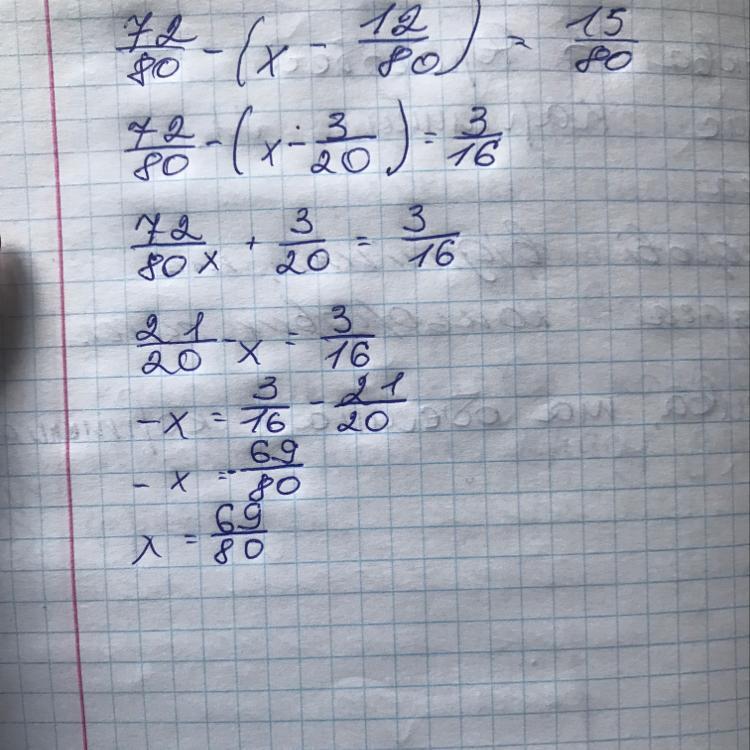 72/80 - (x - 12/80) = 15/80
72/80 - (x - 3/20) = 3/16
72/80 x + 3/20 = 3/16
21/20 - x = 3/16
-x = 3/16 - 21/20
-x = -69/80
x = 69/80